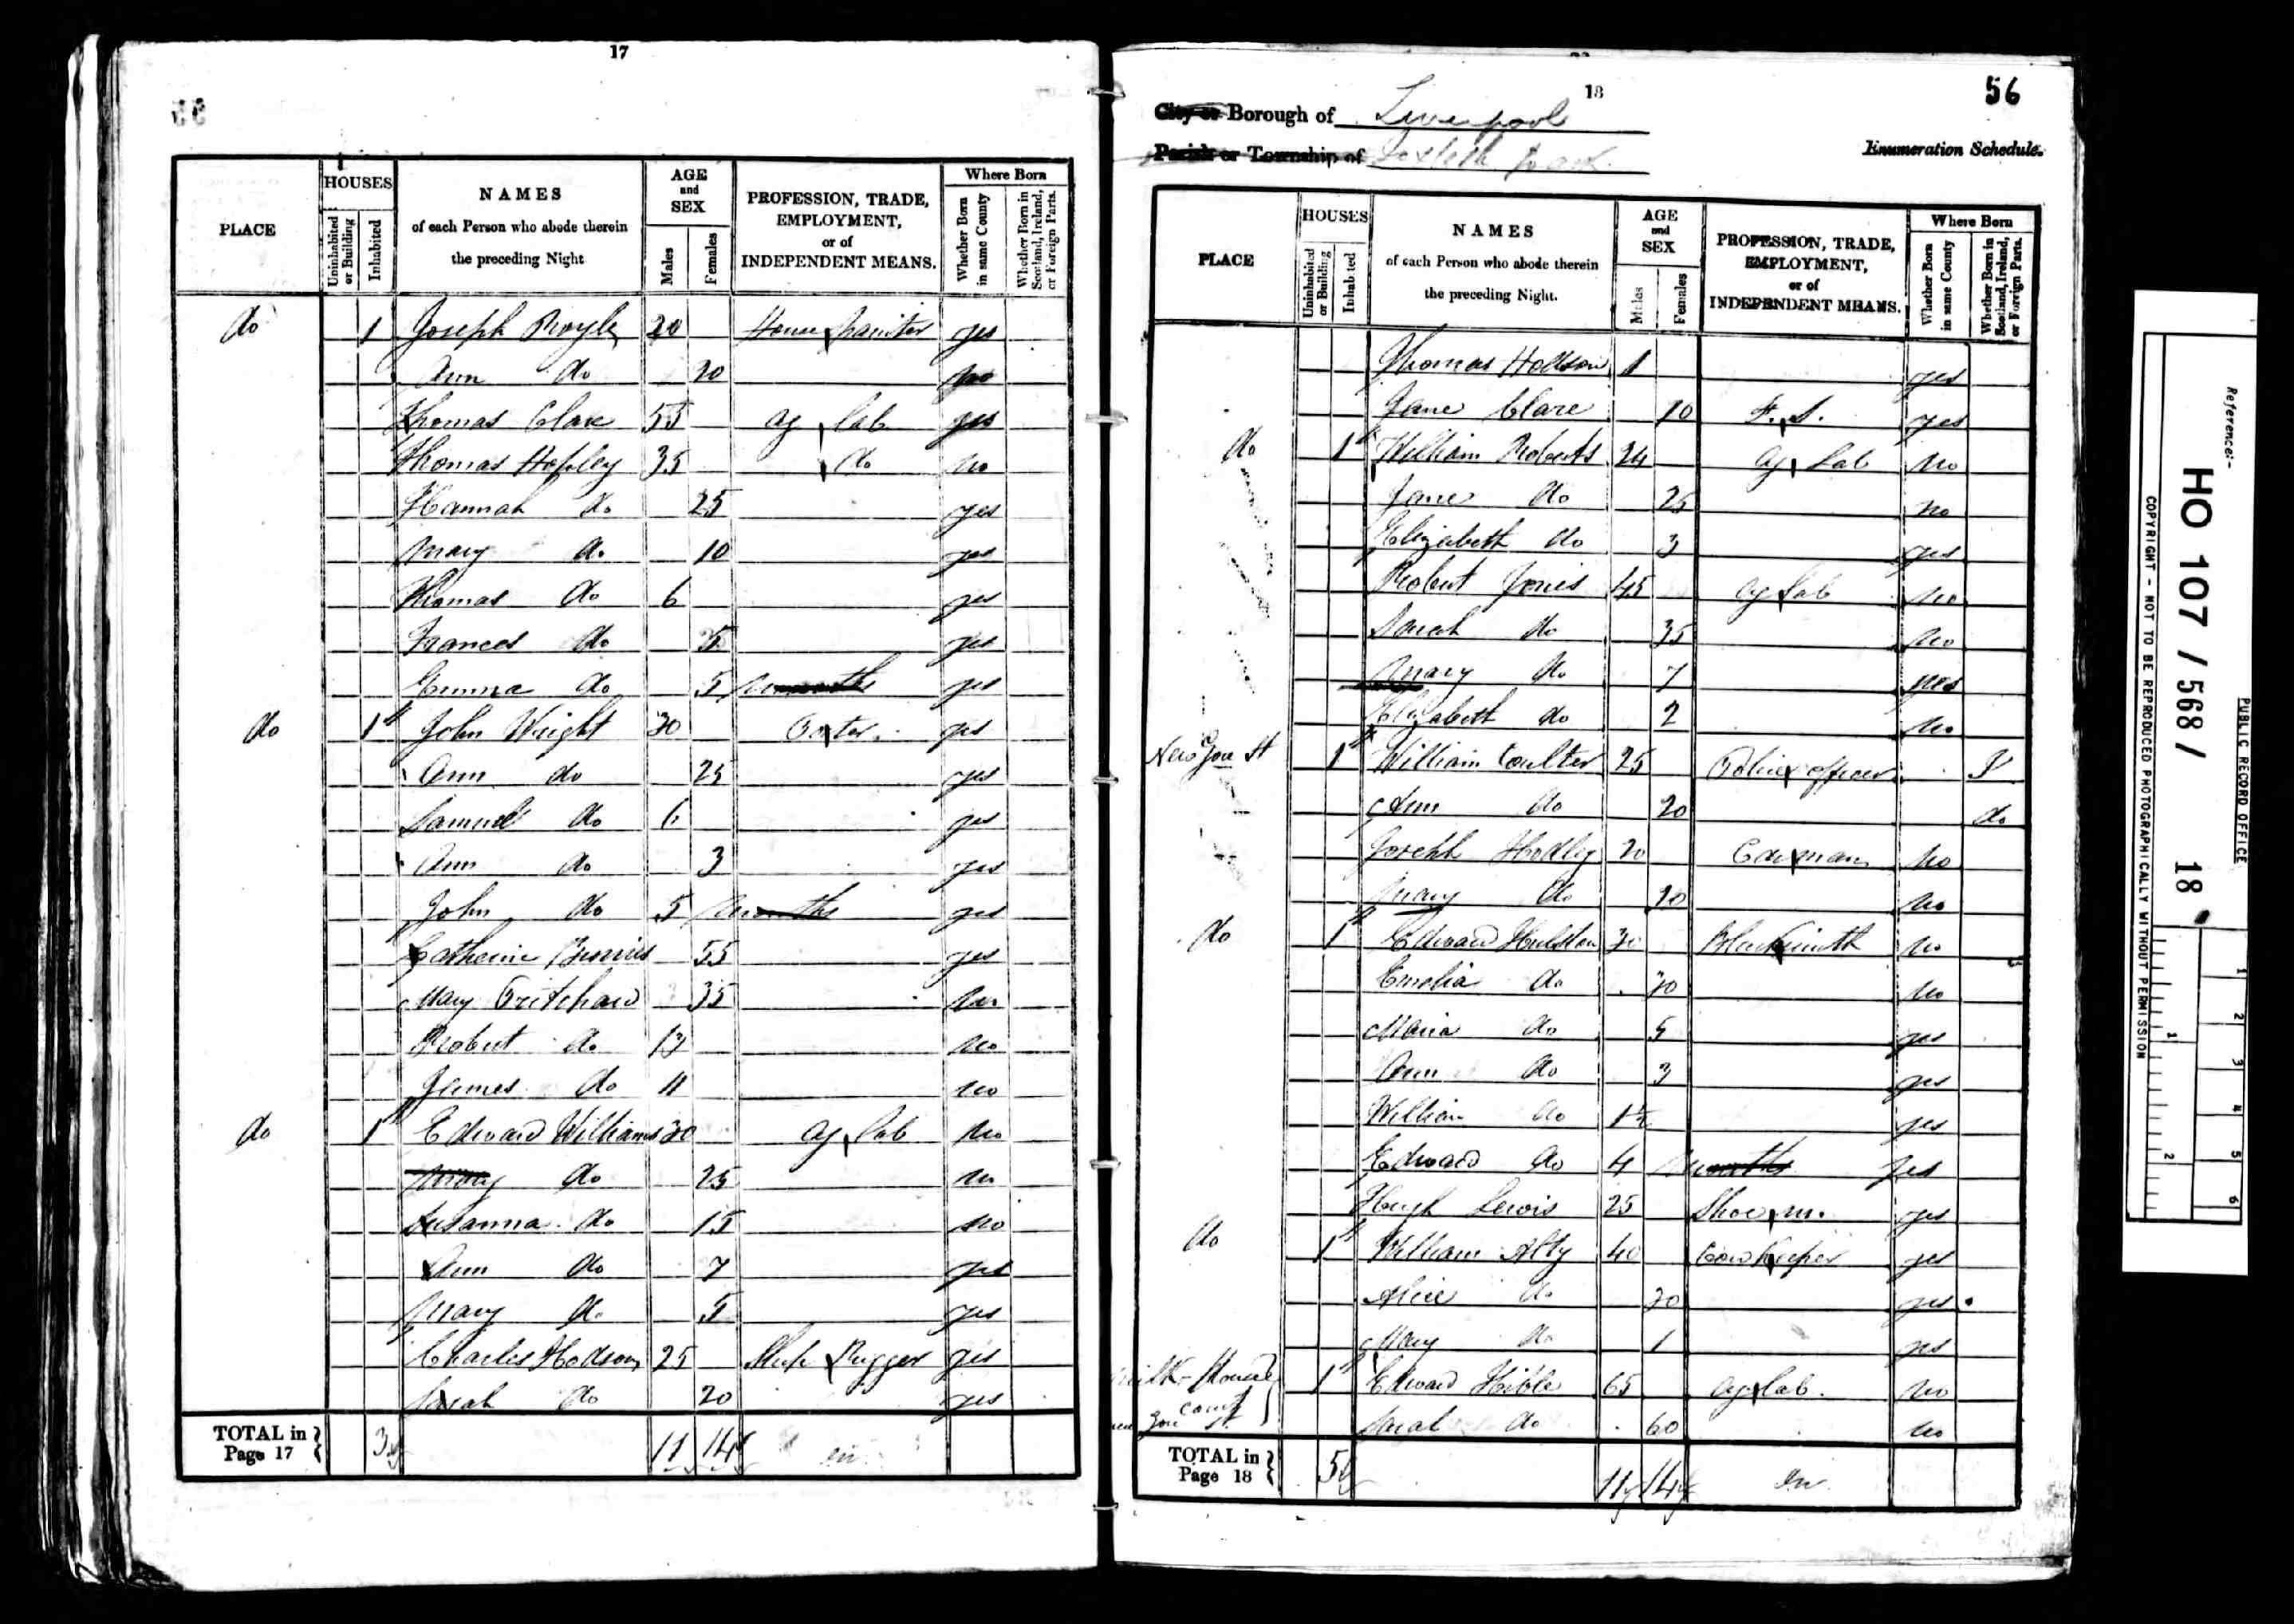 17
PLACE
HOUSES
Uninhabited or Building
Inhabited
NAMES
of each Person who abode therein
the preceding Night
AGE
and
SEX
Males
Females
PROFESSION, TRADE,
EMPLOYMENT,
or of
INDEPENDENT MEANS.
Where Born
Whether Born in same County
Whether Born in Scotland, Ireland, or Foreign Parts.
do 1 Joseph Royle 20 House Painter yes
Ann do 20 no
Thomas Clare 55 Ag Lab yes
Thomas Hopley 35 do no
Hannah do 25 yes
Mary do 10 yes
Thomas do 6 yes
Frances do yes
Emma do 5 months yes
do 1 John Wright 30 Porter yes
Ann do 25 yes
Samuel do 6 yes
Ann do 3 yes
John do 5 months yes
Catherine 55 yes
Mary Pritchard 35 no
Robert do 13 no
James do 11 no
do 1 Edward Williams 30 Ag Lab no
Mary do 25 no
Susanna do 15 no
Ann do 7 yes
Mary do 5 yes
Charles Hodson 25 Ship Rigger yes
Sarah do 20 yes
TOTAL in Page 17 3 11 14
18
56
City or Borough of Liverpool
Parish or Township of Toxteth Park
Enumeration Schedule.
PLACE
HOUSES
Uninhabited or Building
Inhabited
NAMES
of each Person who abode therein
the preceding Night.
AGE
and
SEX
Males
Females
PROFESSION, TRADE,
EMPLOYMENT,
or of
INDEPENDENT MEANS.
Where Born
Whether Born in same County
Whether Born in Scotland, Ireland, or Foreign Parts.
Thomas Hodson 1 yes
Jane Clare 10 F. S. yes
do 1 William Roberts 24 Ag Lab no
Jane do 25 no
Elizabeth do 3 yes
Robert Jones 45 Ag Lab no
Sarah do 35 no
Mary do 7 yes
Elizabeth do 2 no
New Gore St 1 William Coulter 25 Police officer I
Ann do 20 do
Joseph Hodley 20 Carman no
Mary do 20 no
do 1 Edward Hulston 30 Blacksmith no
Emelia do 30 no
Maria do 5 yes
Ann do 3 yes
William do 1½ yes
Edward do 4 months yes
Hugh Lewis 25 Shoe m. yes
do 1 William Alty 40 Cow Keeper yes
Alice do 30 yes
Mary do 1 yes
Milk House 1 Edward Hible 65 Ag Lab. no
court
Gore St. Sarah do 60 no
TOTAL in Page 18 5 11 14
Reference:-
HO 107 / 568 / 18
PUBLIC RECORD OFFICE
COPYRIGHT - NOT TO BE REPRODUCED PHOTOGRAPHICALLY WITHOUT PERMISSION
1 2 3 4 5 6
1 2